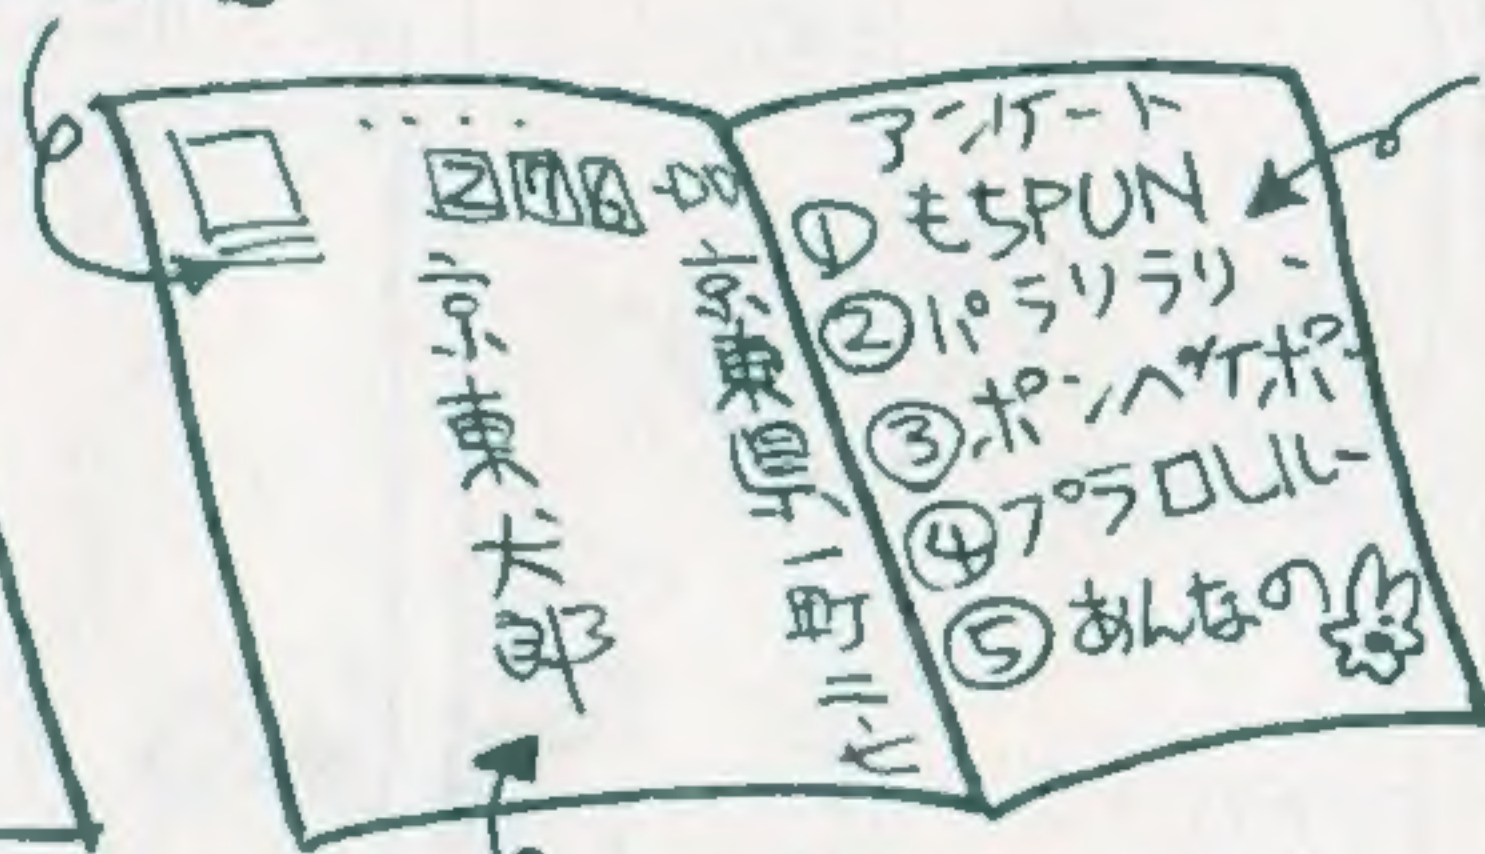 276-00
京東県一町三七
京東犬郎
アンケート
①もちPUN
②パラリラリー
③ポンペイポ
④プラロレルー
⑤あんなの